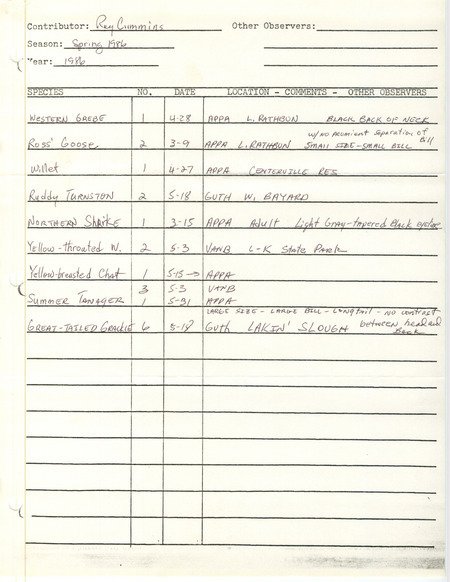 Contributor: Ray Cummins Other Observers:
Season: Spring 1986
Year: 1986
SPECIES NO. DATE LOCATION - COMMENTS - OTHER OBSERVERS
Western Grebe 1 4-28 APPA L. RATHBUN BLACK BACK OF NECK
w/no prominent separation of Bill
Ross' Goose 2 3-9 APPA L. RATHBUN SMALL SIZE-SMALL BILL
Willet 1 4-27 APPA CENTERVILLE RES
Ruddy Turnston 2 5-18 GUTH W. BAYARD
Northern Shrike 1 3-15 APPA Adult Light Gray-tapered Black
Yellow-throated W. 2 5-3 VANB L-K State Park
Yellow-breasted Chat 1 5-15 → APPA
3 5-3 VANB
Summer Tanager 1 5-31 APPA
LARGE SIZE - LARGE BILL - LONG tail - NO contrast
Great-tailed Grackle 6 5-18 Guth LAKIN' SLOUGH between head and
Back